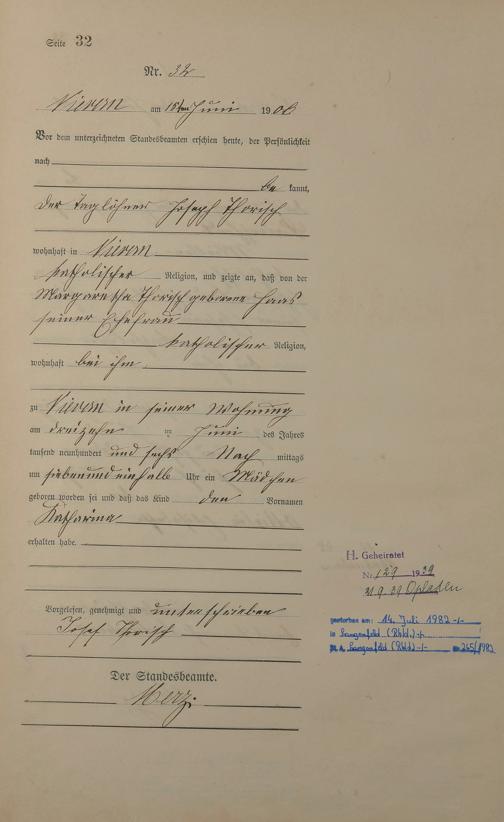 Seite 32
Nr. 32
Nievern am 15ten Juni 1906
Vor dem unterzeichneten Standesbeamten erschien heute, der Persönlichkeit
nach
be kannt,
der Taglöhner Joseph Thorisch
wohnhaft in Nievern
katholischer Religion, und zeigte an, daß von der
Margaretha Thorisch geborene Haas
seiner Ehefrau
katholischer Religion,
wohnhaft bei ihm
zu Nievern in seiner Wohnung
am dreizehn Juni des Jahres
tausend neunhundert und sechs Nach mittags
um siebenundeinhalb Uhr ein Mädchen
geboren worden sei und daß das Kind den Vornamen
Katharina
erhalten habe.
Vorgelesen, genehmigt und unterschrieben
Josef Thorisch
Der Standesbeamte.
Merz
H. Geheiratet
Nr. 129 1939
21.9.39 Opladen
gestorben am: 14. Juli 1982 -/-
in Langenfeld (Rhld.) -/-
St. A. Langenfeld (Rhld) -/- Nr. 265/1982